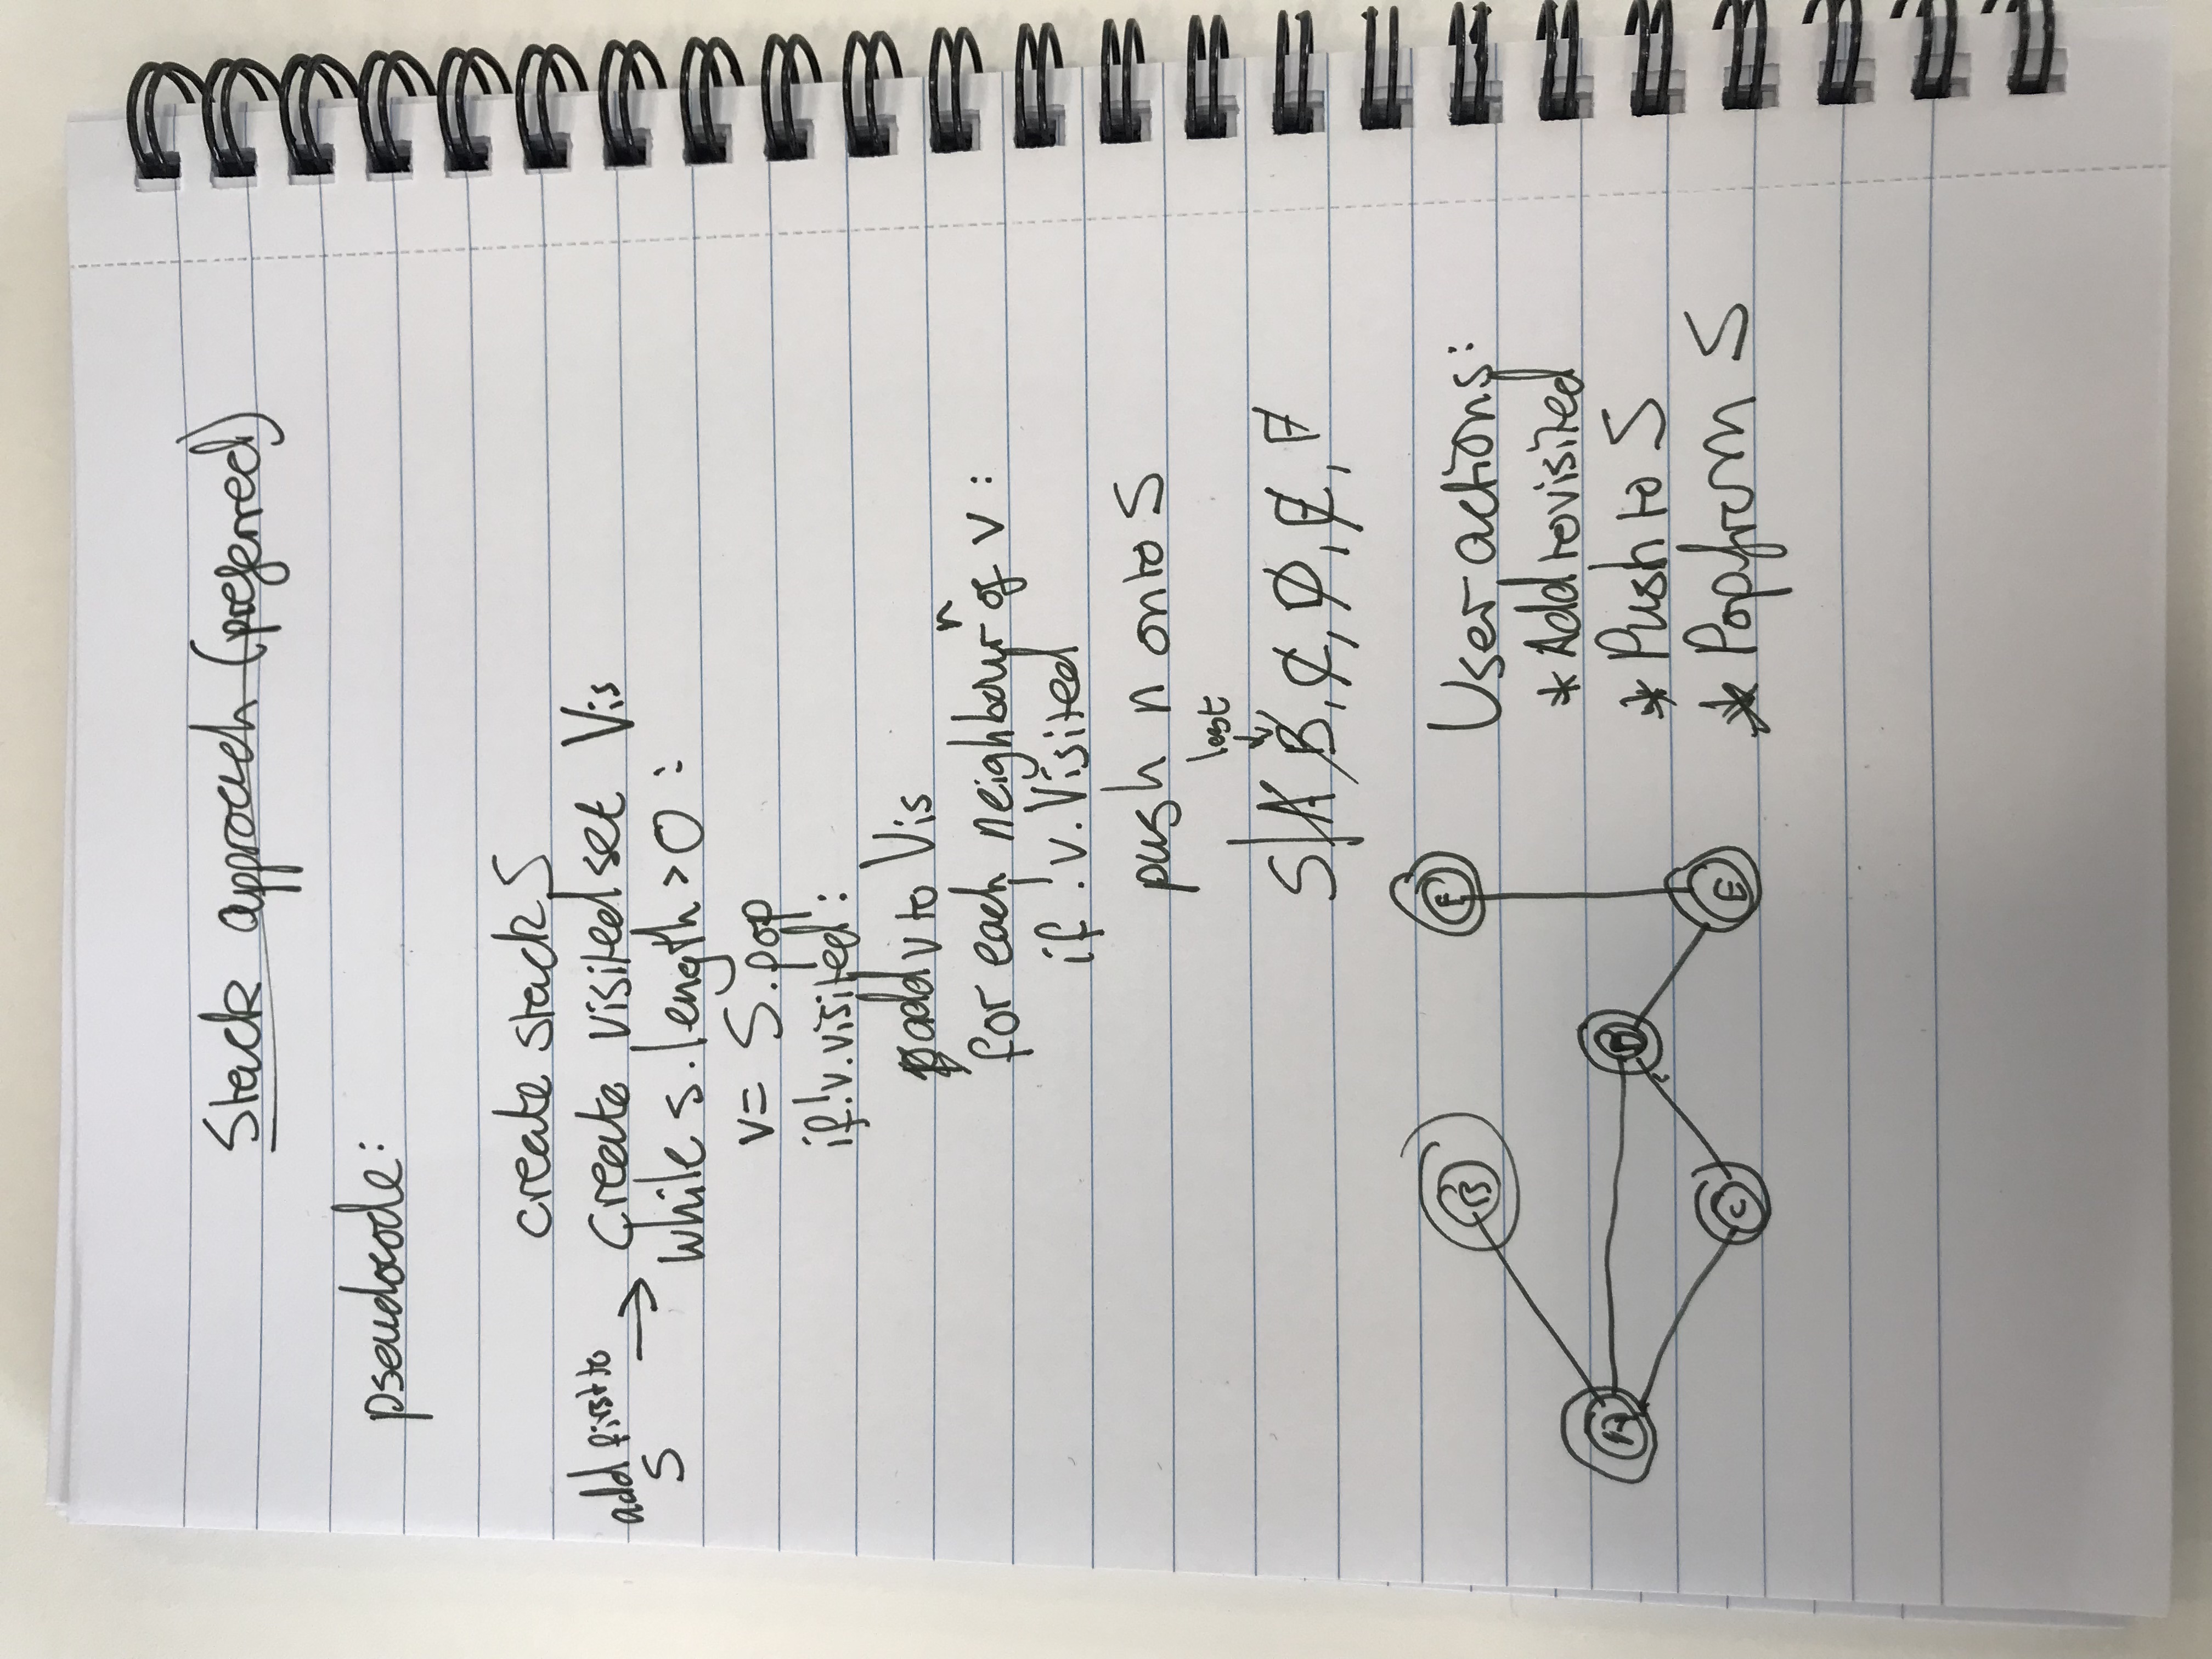 Stack approach (preferred)
pseudocode:
create stack S
add first to
S → create visited set Vis
while s.length > 0 :
v = S.pop
if !v.visited :
add v to Vis
for each neighbour n of v :
if !v.Visited
push n onto S
last
↓
S | A B, C, D, E, F
B
F
A
D
C
E
User actions:
* Add to visited
* Push to S
* Pop from S